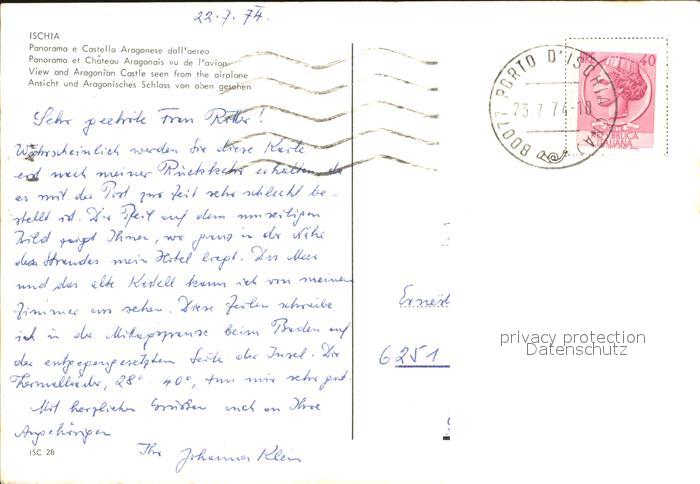 22.7.74.
ISCHIA
Panorama e Castello Aragonese dall'aereo
Panorama et Château Aragonais vu de l'avion
View and Aragonian Castle seen from the airplane
Ansicht und Aragonisches Schloss von oben gesehen
Sehr geehrte Frau Ritter!
Wahrscheinlich werden Sie diese Karte
erst nach meiner Rückkehr erhalten, da
es mit der Post zur Zeit sehr schlecht be-
stellt ist. Der Pfeil auf dem umseitigen
Bild zeigt Ihnen, wo ganz in der Nähe
des Strandes mein Hotel liegt. Das Meer
und das alte Kastell kann ich von meinem
Zimmer aus sehen. Diese Zeilen schreibe
ich in der Mittagspause beim Baden auf
der entgegengesetzten Seite der Insel. Die
Thermalbäder, 28° - 40°, tun mir sehr gut.
Mit herzlichen Grüßen auch an Ihre
Angehörigen
Ihr Johannes Klein
ISC 28
80077 PORTO D'ISCHIA (NA)
23.7.74-18
40
REPUBBLICA
ITALIANA
6251
privacy protection
Datenschutz